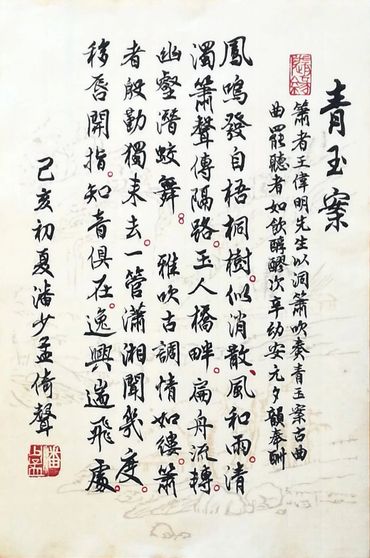 青玉案
簫者王偉明先生以洞簫吹奏青玉案古曲
曲罷聽者如飲醇醪次辛幼安元夕韻奉酬
鳳鳴發自梧桐樹。似消散、風和雨。清
濁簫聲傳隔路。玉人橋畔。扁舟流轉。
幽壑潛蛟舞。 雅吹古調情如縷。簫
者殷勤獨來去。一管瀟湘聞幾度。
移唇開指。知音俱在。逸興遄飛處。
己亥初夏潘少孟倚聲